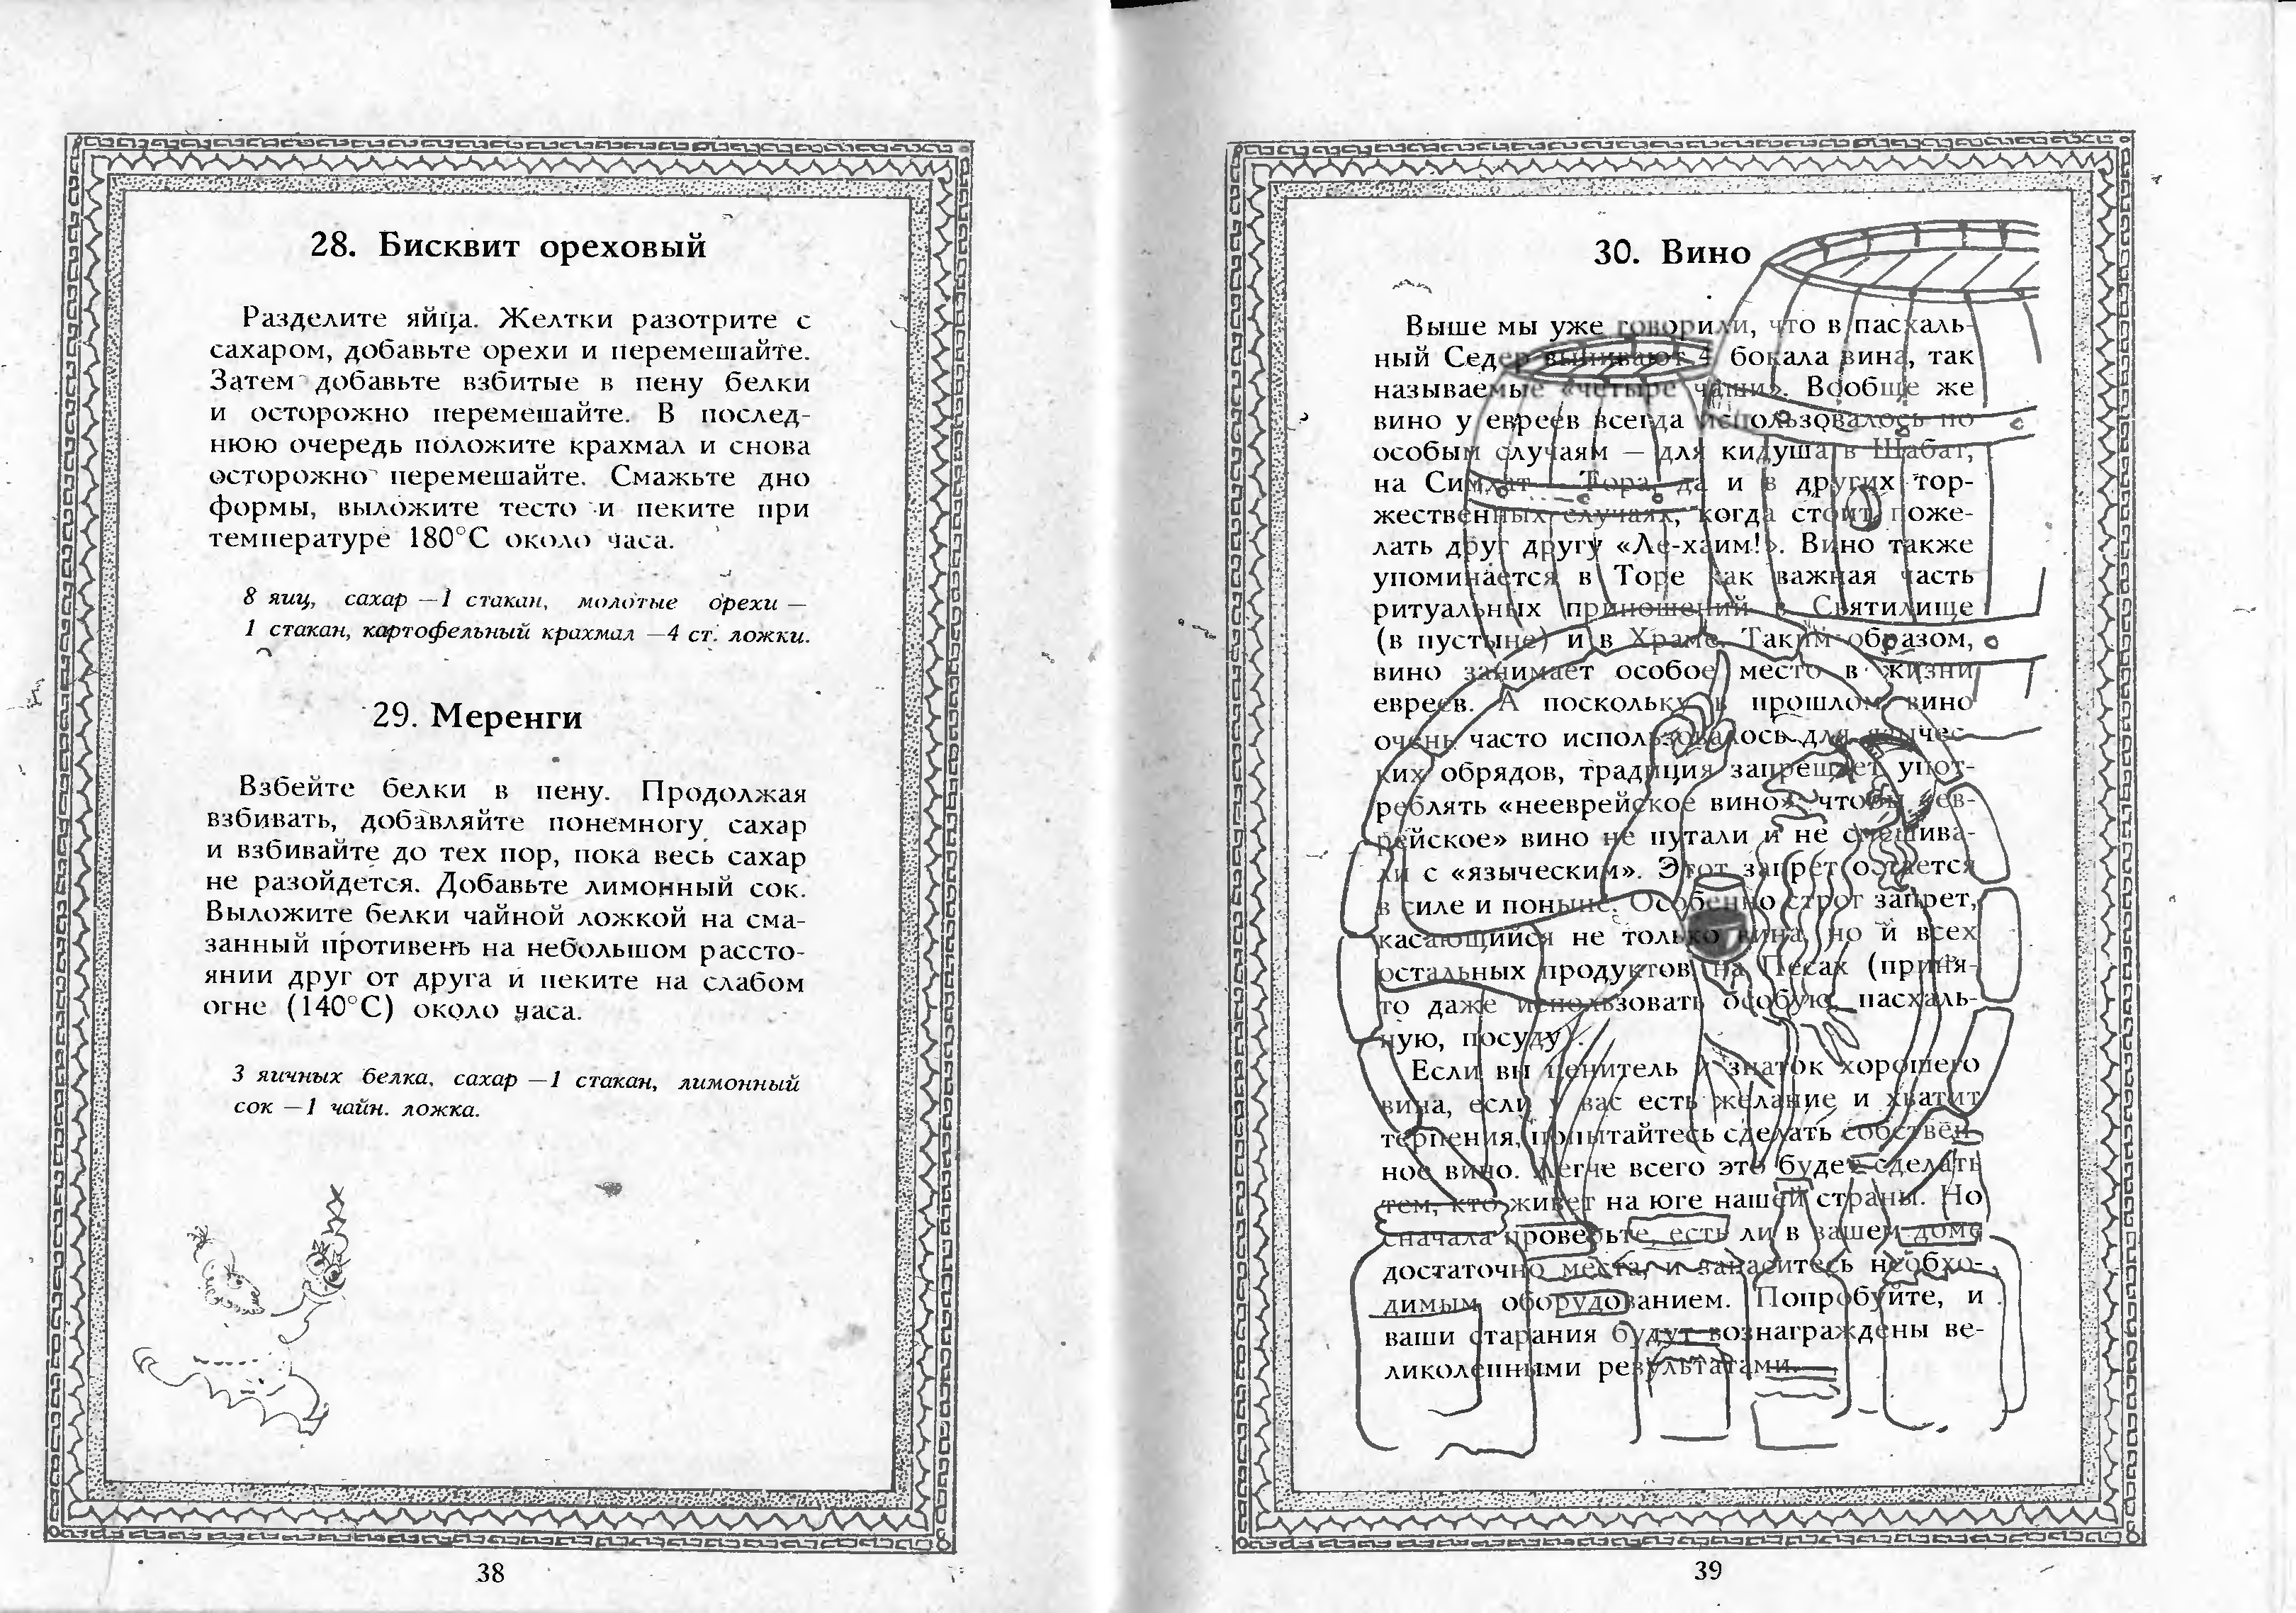 28. Бисквит ореховый
Разделите яйца. Желтки разотрите с
сахаром, добавьте орехи и перемешайте.
Затем добавьте взбитые в пену белки
и осторожно перемешайте. В послед-
нюю очередь положите крахмал и снова
осторожно перемешайте. Смажьте дно
формы, выложите тесто и пеките при
температуре 180°С около часа.
8 яиц, сахар —1 стакан, молотые орехи —
1 стакан, картофельный крахмал —4 ст. ложки.
29. Меренги
Взбейте белки в пену. Продолжая
взбивать, добавляйте понемногу сахар
и взбивайте до тех пор, пока весь сахар
не разойдется. Добавьте лимонный сок.
Выложите белки чайной ложкой на сма-
занный противень на небольшом рассто-
янии друг от друга и пеките на слабом
огне (140°С) около часа.
3 яичных белка, сахар —1 стакан, лимонный
сок —1 чайн. ложка.
38
30. Вино
Выше мы уже говорили, что в пасхаль-
ный Седер выпивают 4 бокала вина, так
называемые «четыре чаши». Вообще же
вино у евреев всегда использовалось по
особым случаям — для кидуша в Шабат,
на Симхат - Тора, да и в других тор-
жественных случаях, когда стоит поже-
лать друг другу «Ле-хаим!». Вино также
упоминается в Торе как важная часть
ритуальных приношений в Святилище
(в пустыне) и в Храме. Таким образом,
вино занимает особое место в жизни
евреев. А поскольку в прошлом вино
очень часто использовалось для язычес-
ких обрядов, традиция запрещает упот-
реблять «нееврейское вино», чтобы «ев-
рейское» вино не путали и не смешива-
ли с «языческим». Этот запрет остается
в силе и поныне. Особенно строг запрет,
касающийся не только вина, но и всех
остальных продуктов на Песах (приня-
то даже использовать особую, пасхаль-
ную, посуду).
Если вы ценитель и знаток хорошего
вина, если у вас есть желание и хватит
терпения, попытайтесь сделать собствен-
ное вино. Легче всего это будет сделать
тем, кто живет на юге нашей страны. Но
сначала проверьте, есть ли в вашем доме
достаточно места, и запаситесь необхо-
димым оборудованием. Попробуйте, и
ваши старания будут вознаграждены ве-
ликолепными результатами.
39